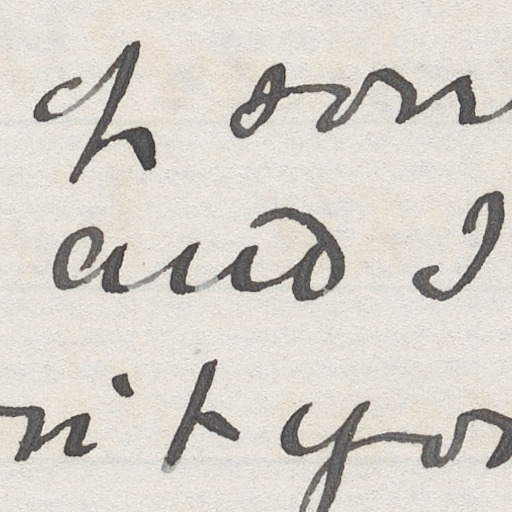 of son
and I
n't you